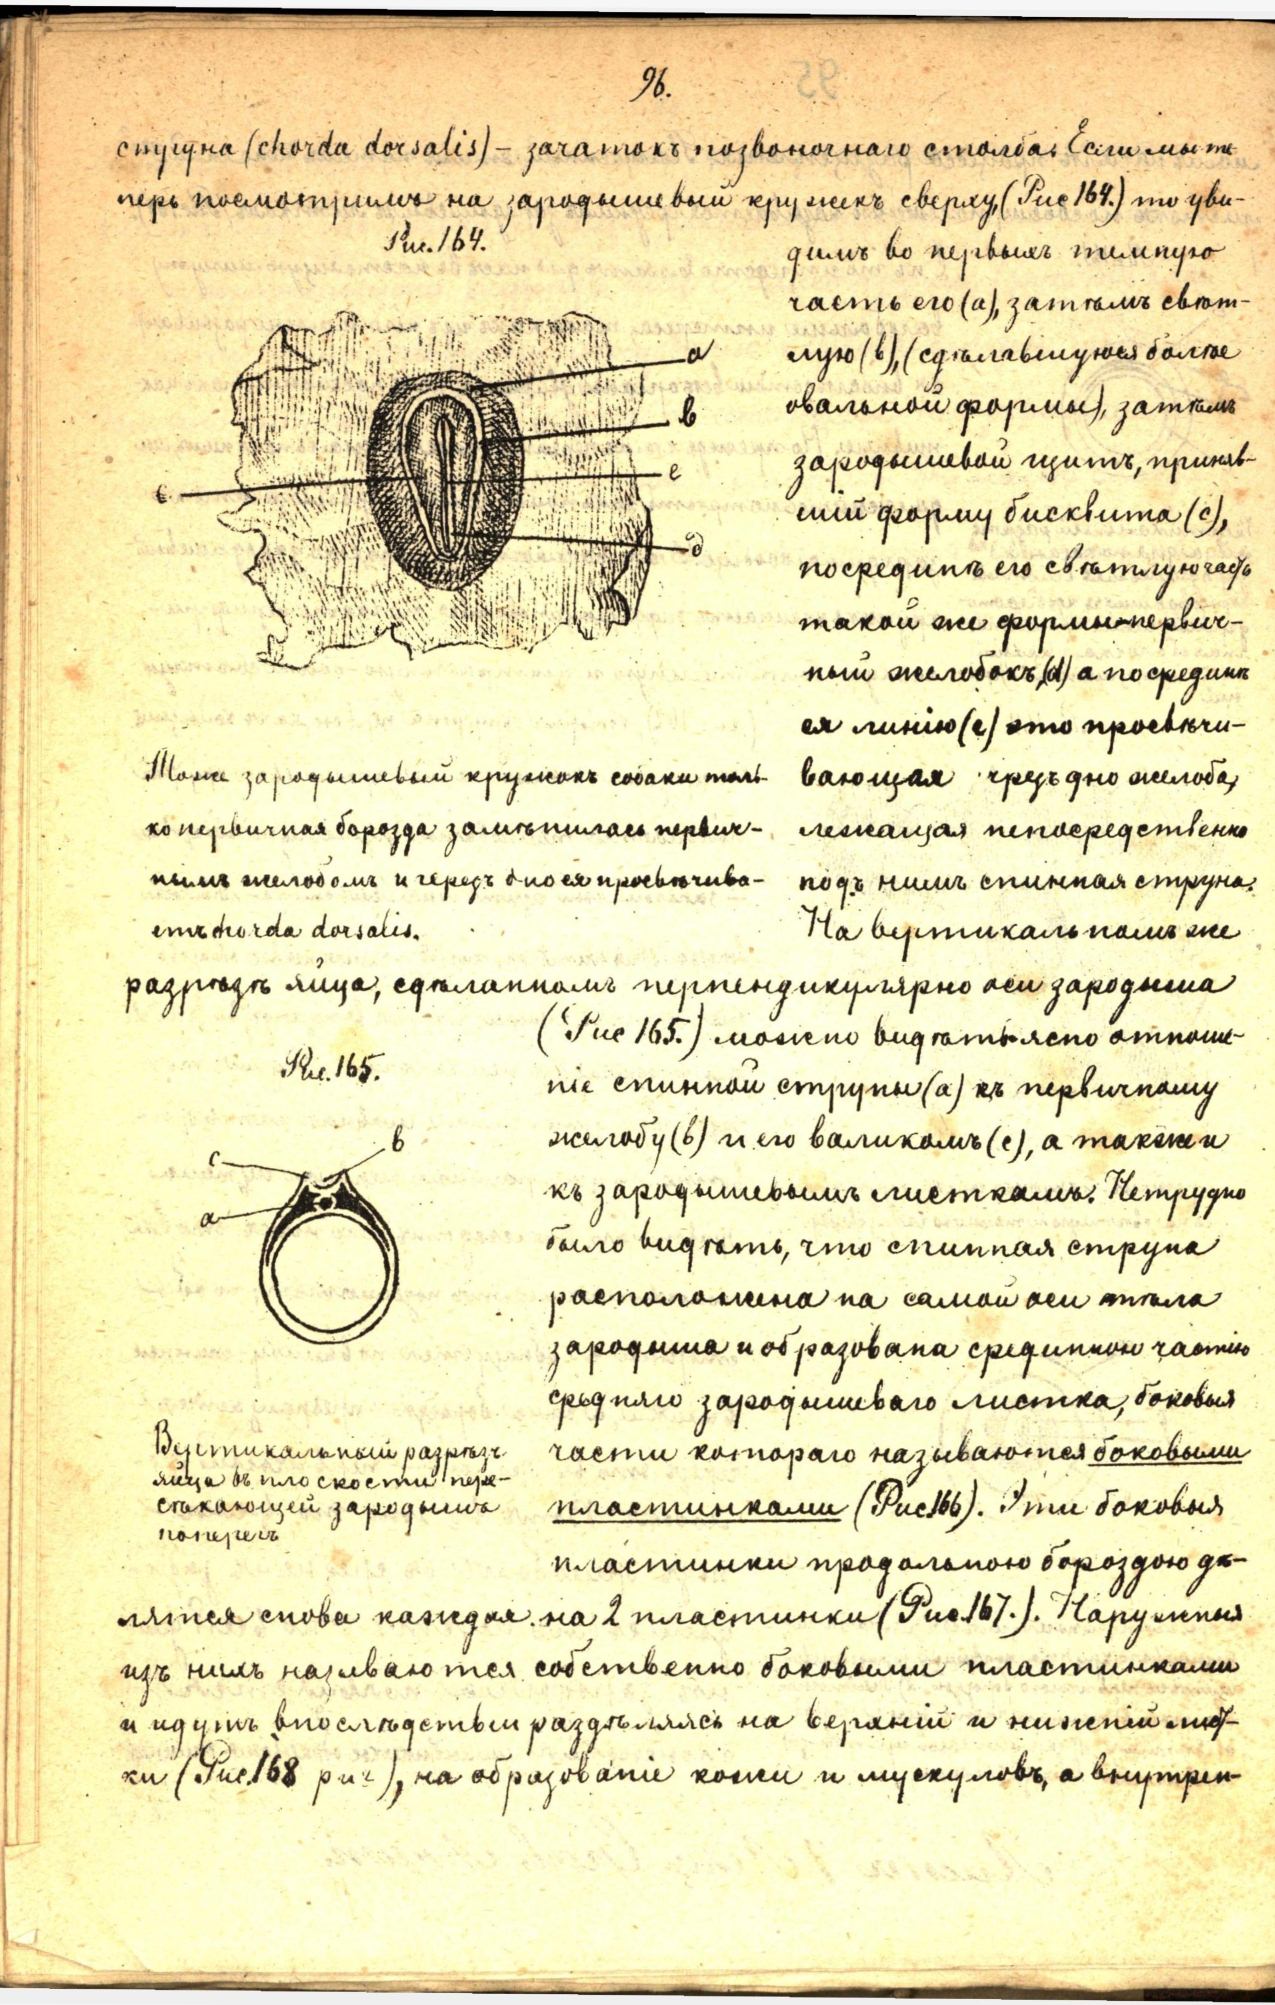 96.
струна (chorda dorsalis) – зачатокъ позвоночнаго столба. Если мы те-
перь посмотримъ на зародышевый кружекъ сверху, (Рис 164.) то уви-
Рис. 164.
димъ во первыхъ темную
часть его (а), затѣмъ свѣт-
лую (b), (сдѣлавшуюся болѣе
овальной формы), затѣмъ
зародышевой щитъ, приняв-
шій форму бисквита (с),
посрединѣ его свѣтлую часть
такой же формы – первич-
ный желобокъ, (d) а посрединѣ
ея линію (е) это просвѣчи-
вающая чрезъ дно желоба,
лежащая непосредственно
подъ нимъ спинная струна.
a
b
e
c
d
Тоже зародышевый кружокъ собаки толь-
ко первичная борозда замѣнилась первич-
нымъ желобомъ и черезъ дно ея просвѣчива-
етъ chorda dorsalis.
На вертикальномъ же
разрѣзѣ яйца, сдѣланномъ перпендикулярно оси зародыша
(Рис 165.) можно видѣть ясно отноше-
ніе спинной струны (а) къ первичному
желобу (b) и его валикомъ (с), а также и
къ зародышевымъ листкамъ. Нетрудно
было видѣть, что спинная струна
расположена на самой оси тѣла
зародыша и образована срединною частію
средняго зародышеваго листка, боковыя
части котораго называются боковыми
пластинками (Рис. 166). Эти боковыя
пластинки продольною бороздою дѣ-
Рис. 165.
c
b
a
Вертикальный разрѣзъ
яйца въ плоскости пере-
сѣкающей зародышъ
поперегъ
лятся снова каждая на 2 пластинки (Рис. 167.). Наружныя
изъ нихъ называются собственно боковыми пластинками
и идутъ впослѣдствіи раздѣляясь на верхній и нижній лист-
ки (Рис. 168), на образованіе кожи и мускуловъ, а внутрен-